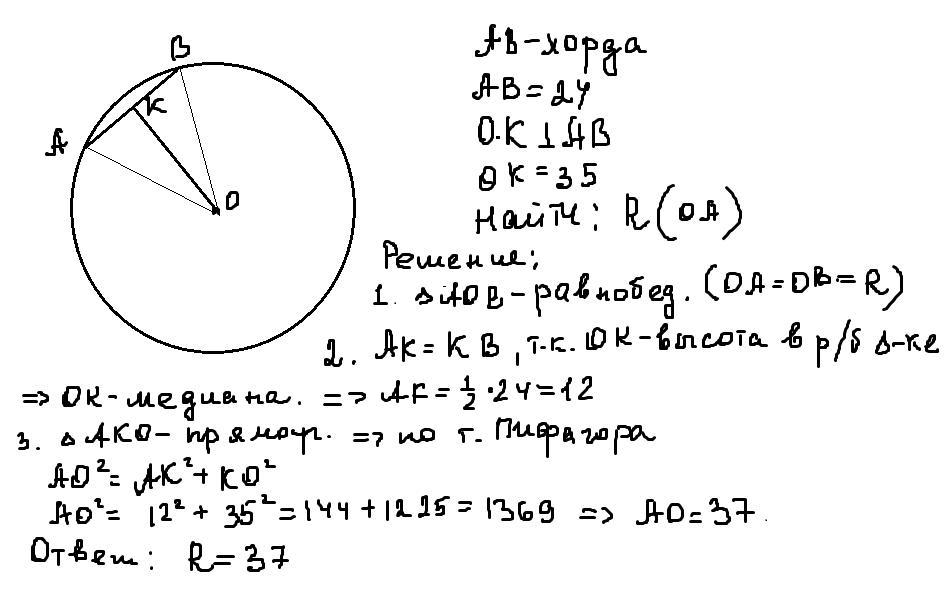 B
A
K
O
AB-хорда
AB=24
OK⊥AB
OK=35
Найти: R(OA)
Решение:
1. ΔAOB-равнобед. (OA=OB=R)
2. AK=KB, т.к. OK-высота в р/б Δ-ке
=> OK-медиана. => AK=½·24=12
3. ΔAKO-прямоуг. => по т. Пифагора
AO²=AK²+KO²
AO²= 12²+35²=144+1225=1369 => AO=37.
Ответ: R=37